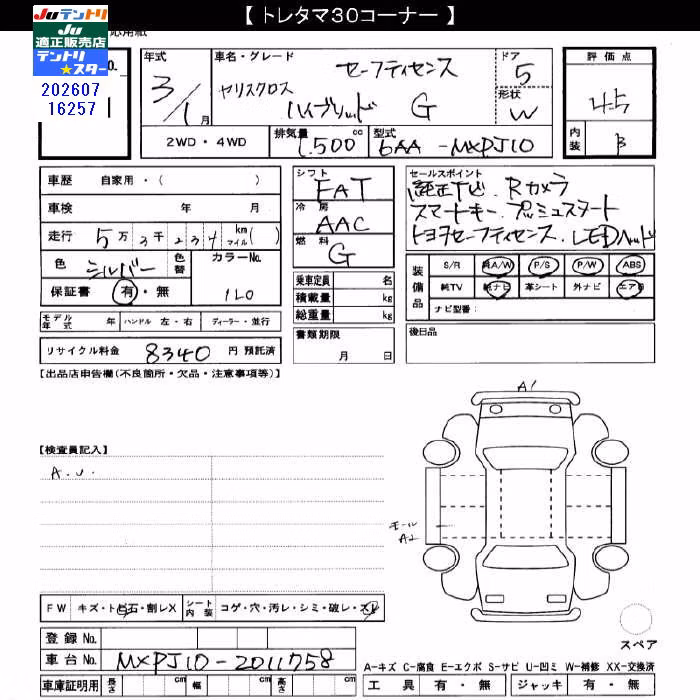 【 トレタマ30コーナー 】
JUテントリ
JU
適正販売店
テントリ
★スター
202607
16257
応用紙
年式 車名・グレード ドア 評価点
3/1月 ヤリスクロス セーフティセンス 5
ハイブリッド G 形状 W 4.5
2WD・4WD 排気量 1,500cc 型式 6AA-MXPJ10 内装 B
車歴 自家用・( )
車検 年 月
走行 5万3千234 km マイル( )
色 シルバー 色替 カラーNo. 1L0
保証書 有・無
モデル年式 年 ハンドル 左・右 ディーラー・並行
リサイクル料金 8340 円 預託済
シフト FAT
冷房 AAC
燃料 G
乗車定員 名
積載量 kg
総重量 kg
書類期限
月 日
セールスポイント
純正ナビ.Rカメラ
スマートキー.プッシュスタート
トヨタセーフティセンス.LEDヘッド
装備品 S/R 純A/W P/S P/W ABS
純TV 純ナビ 革シート 外ナビ エアB
ナビ型番:
後日品
【出品店申告欄(不良箇所・欠品・注意事項等)】
A1
【検査員記入】
A.U.
モール
A2
FW キズ・トビ石・割レX シート内装 コゲ・穴・汚レ・シミ・破レ・スレ
登録No.
スペア
車台No. MXPJ10-2011758
A-キズ C-腐食 E-エクボ S-サビ U-凹ミ W-補修 XX-交換済
車庫証明用 長さ cm 幅 cm 高さ cm
工具 有・無 ジャッキ 有・無